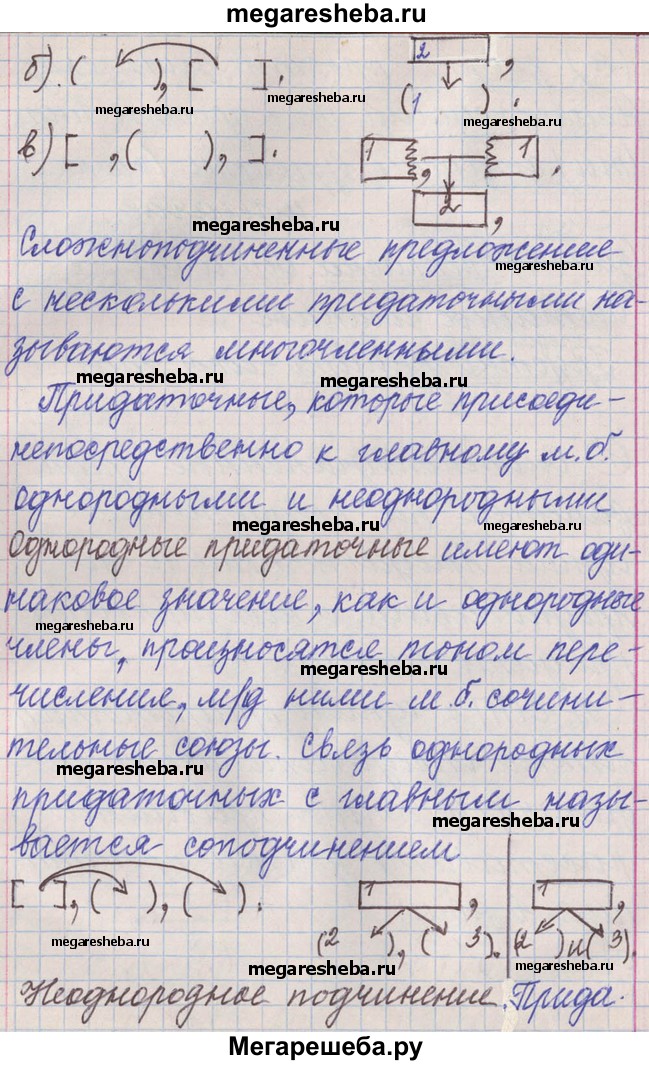 megaresheba.ru
б). ( ), [ ]. 2 ,
megaresheba.ru megaresheba.ru (1 ).
megaresheba.ru
в) [ , ( ), ]. 1 , 1 .
2 ,
megaresheba.ru
Сложноподчиненные предложение
megaresheba.ru
с несколькими придаточными на-
зываются многочленными.
megaresheba.ru megaresheba.ru
Придаточные, которые присоеди-
непосредственно к главному м.б.
однородными и неоднородными
megaresheba.ru megaresheba.ru
Однородные придаточные имеют оди-
наковое значение, как и однородные
megaresheba.ru
члены, произносятся тоном пере-
megaresheba.ru
числения, м/д ними м.б. сочини-
тельные союзы. Связь однородных
megaresheba.ru
придаточных с главным назы-
megaresheba.ru
вается соподчинением
[ ], ( ), ( ). 1 , 1 ,
megaresheba.ru (2 ), ( 3). (2 ) и ( 3).
megaresheba.ru megaresheba.ru
Неоднородное подчинение. Прида.
Мегарешеба.ру